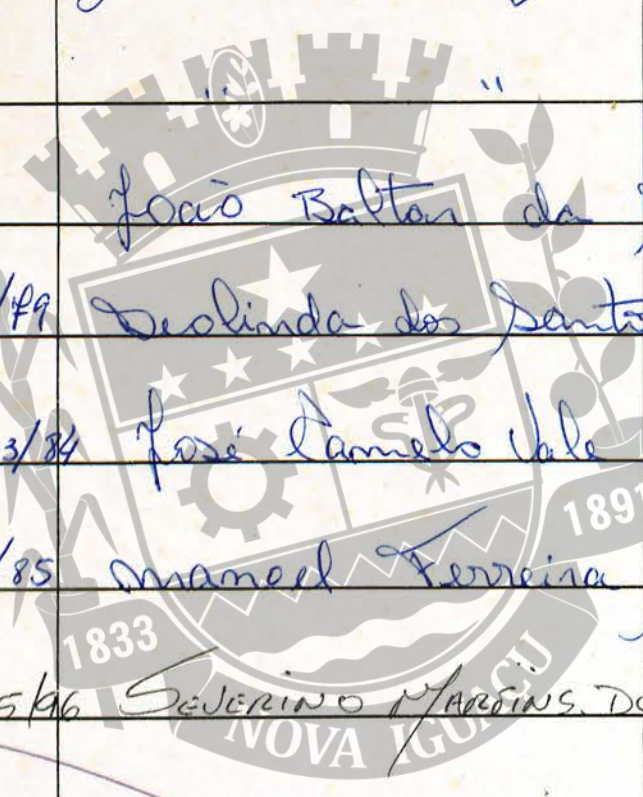 " "
João Baltar da
/79 Deolinda dos Santo
3/84 José Camelo Vale
1891
/85 manoel Ferreira
1833
5/96 SEVERINO MARTINS. DO
NOVA IGUAÇU